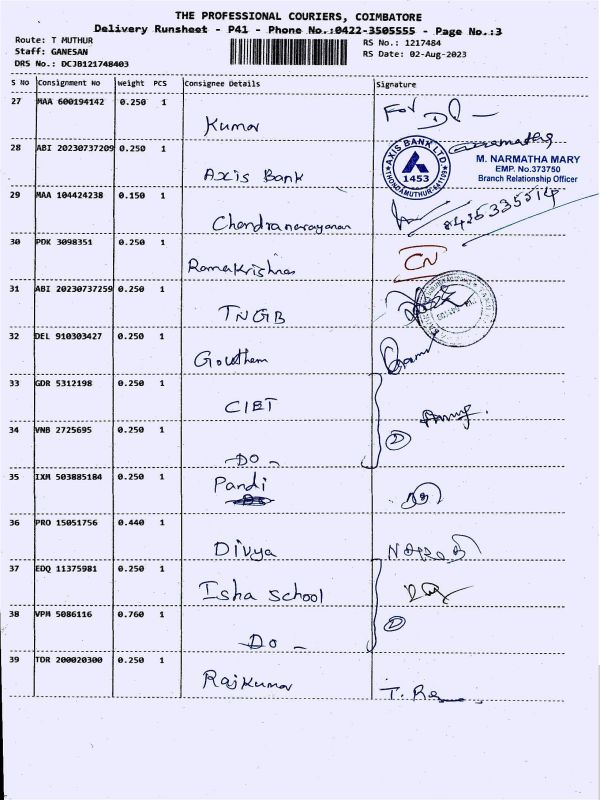 THE PROFESSIONAL COURIERS, COIMBATORE
Delivery Runsheet - P41 - Phone No.:0422-3505555 - Page No.:3
Route: T MUTHUR
RS No.: 1217484
Staff: GANESAN
RS Date: 02-Aug-2023
DRS No.: DCJB121748403
S No Consignment No Weight PCS Consignee Details Signature
27 MAA 600194142 0.250 1
Kumar
For
28 ABI 20230737209 0.250 1
Axis Bank
AXIS BANK LTD.
1453
THONDAMUTHUR-641109
M. NARMATHA MARY
EMP. No.373750
Branch Relationship Officer
29 MAA 104424238 0.150 1
Chandranarayanan
30 PDK 3098351 0.250 1
Ramakrishnas
CN
31 ABI 20230737259 0.250 1
TNGB
32 DEL 910303427 0.250 1
Gowthem
33 GDR 5312198 0.250 1
CIET
34 VNB 2725695 0.250 1
- DO -
2
35 IXM 503885184 0.250 1
Pandi
36 PRO 15051756 0.440 1
Divya
37 EDQ 11375981 0.250 1
Isha School
38 VPM 5086116 0.760 1
- DO -
2
39 TDR 200020300 0.250 1
Rajkumar